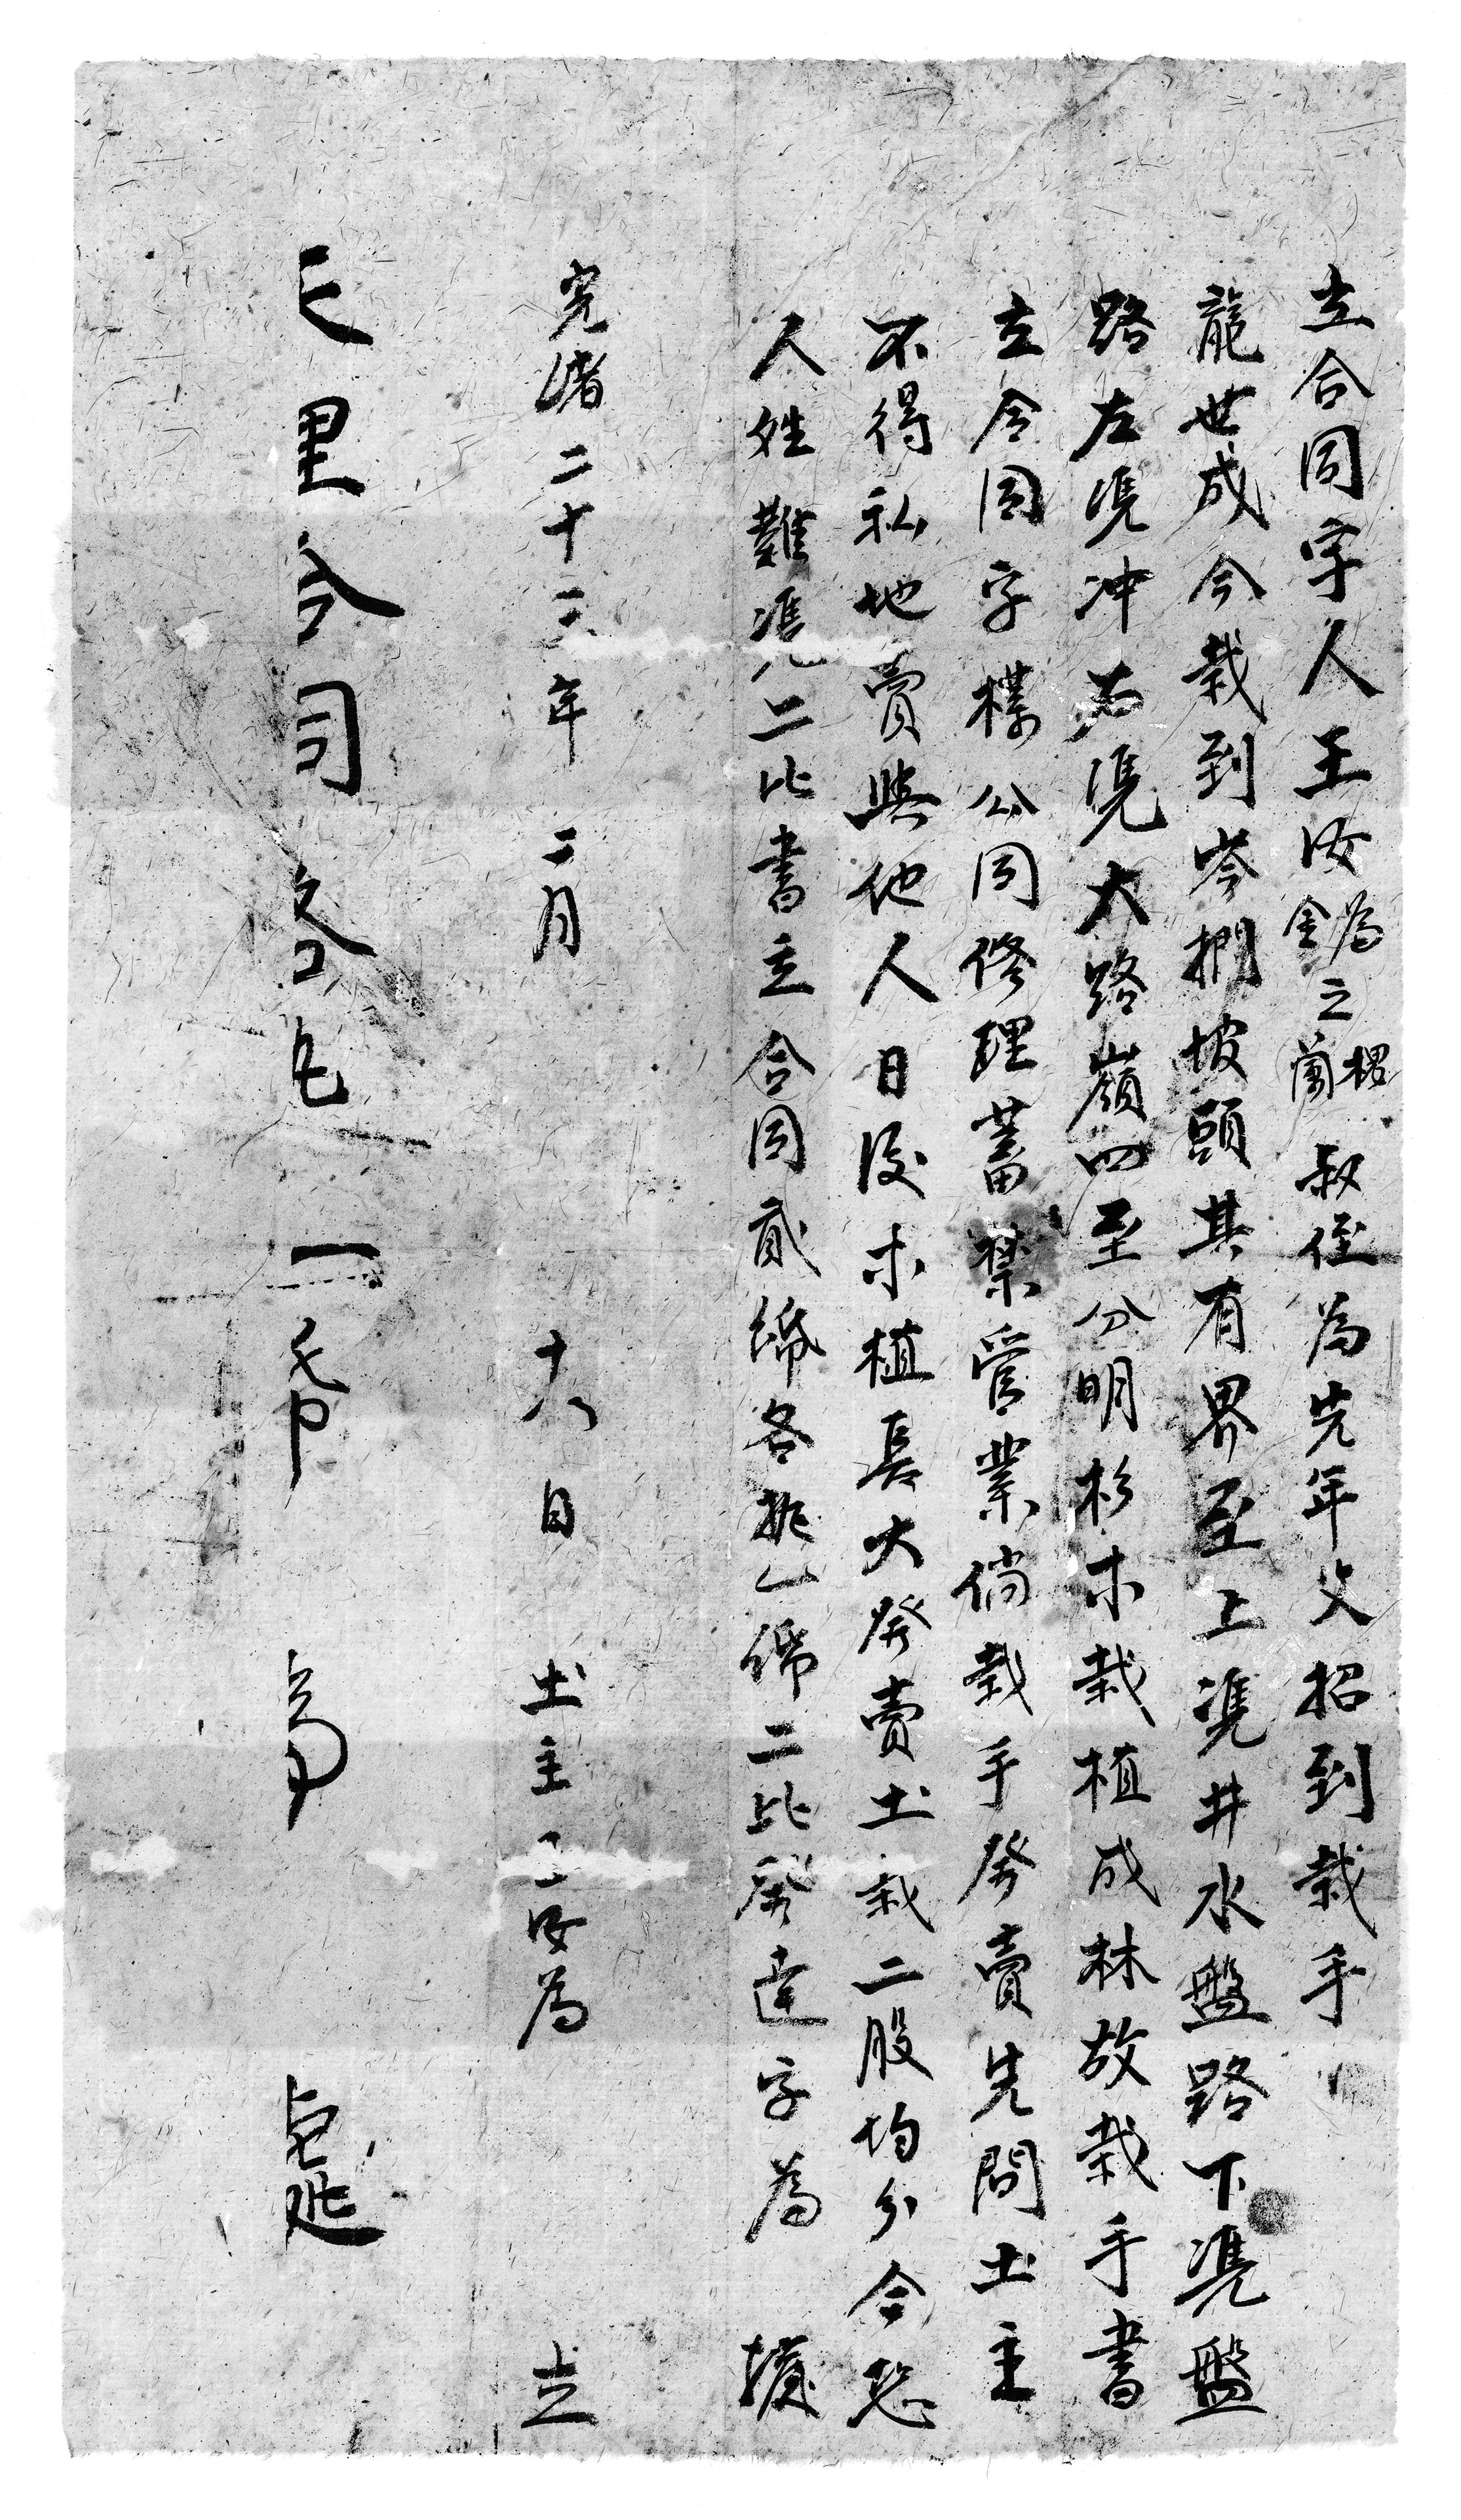 立合同字人王汝為金之楷蘭叔侄為先年父招到栽手
龍世成今栽到岑捫坡頭其有界至上凴井水盤路下凴盤
路左凴冲右凴大路嶺四至分明杉木栽植成林故栽手書
立合同字樣公同修理蓄禁管業倘栽手發賣先問土主
不得私地賣與他人日後木植長大發賣土栽二股均分今恐
人姓難凴二比書立合同貳紙各執一紙二比發達字為據
光緒二十三年二月十六日土主王汝為立